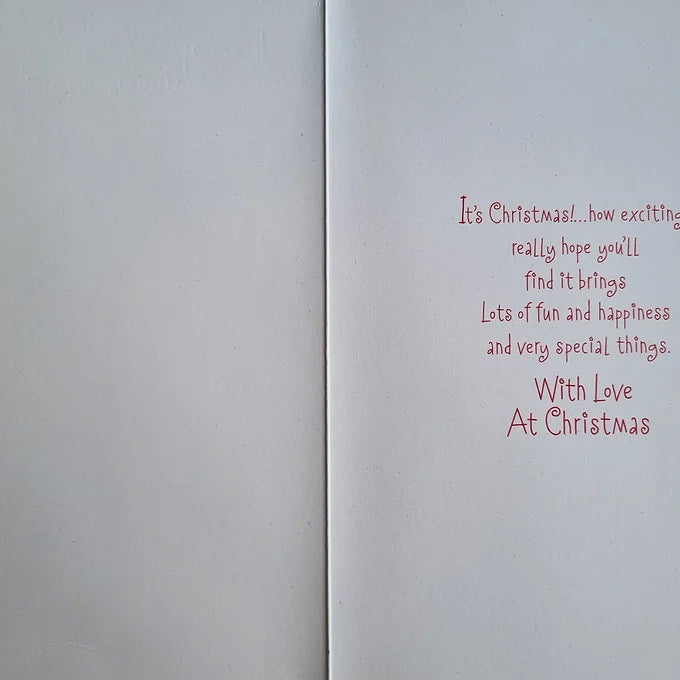 It's Christmas!...how exciting
really hope you'll
find it brings
Lots of fun and happiness
and very special things.
With Love
At Christmas